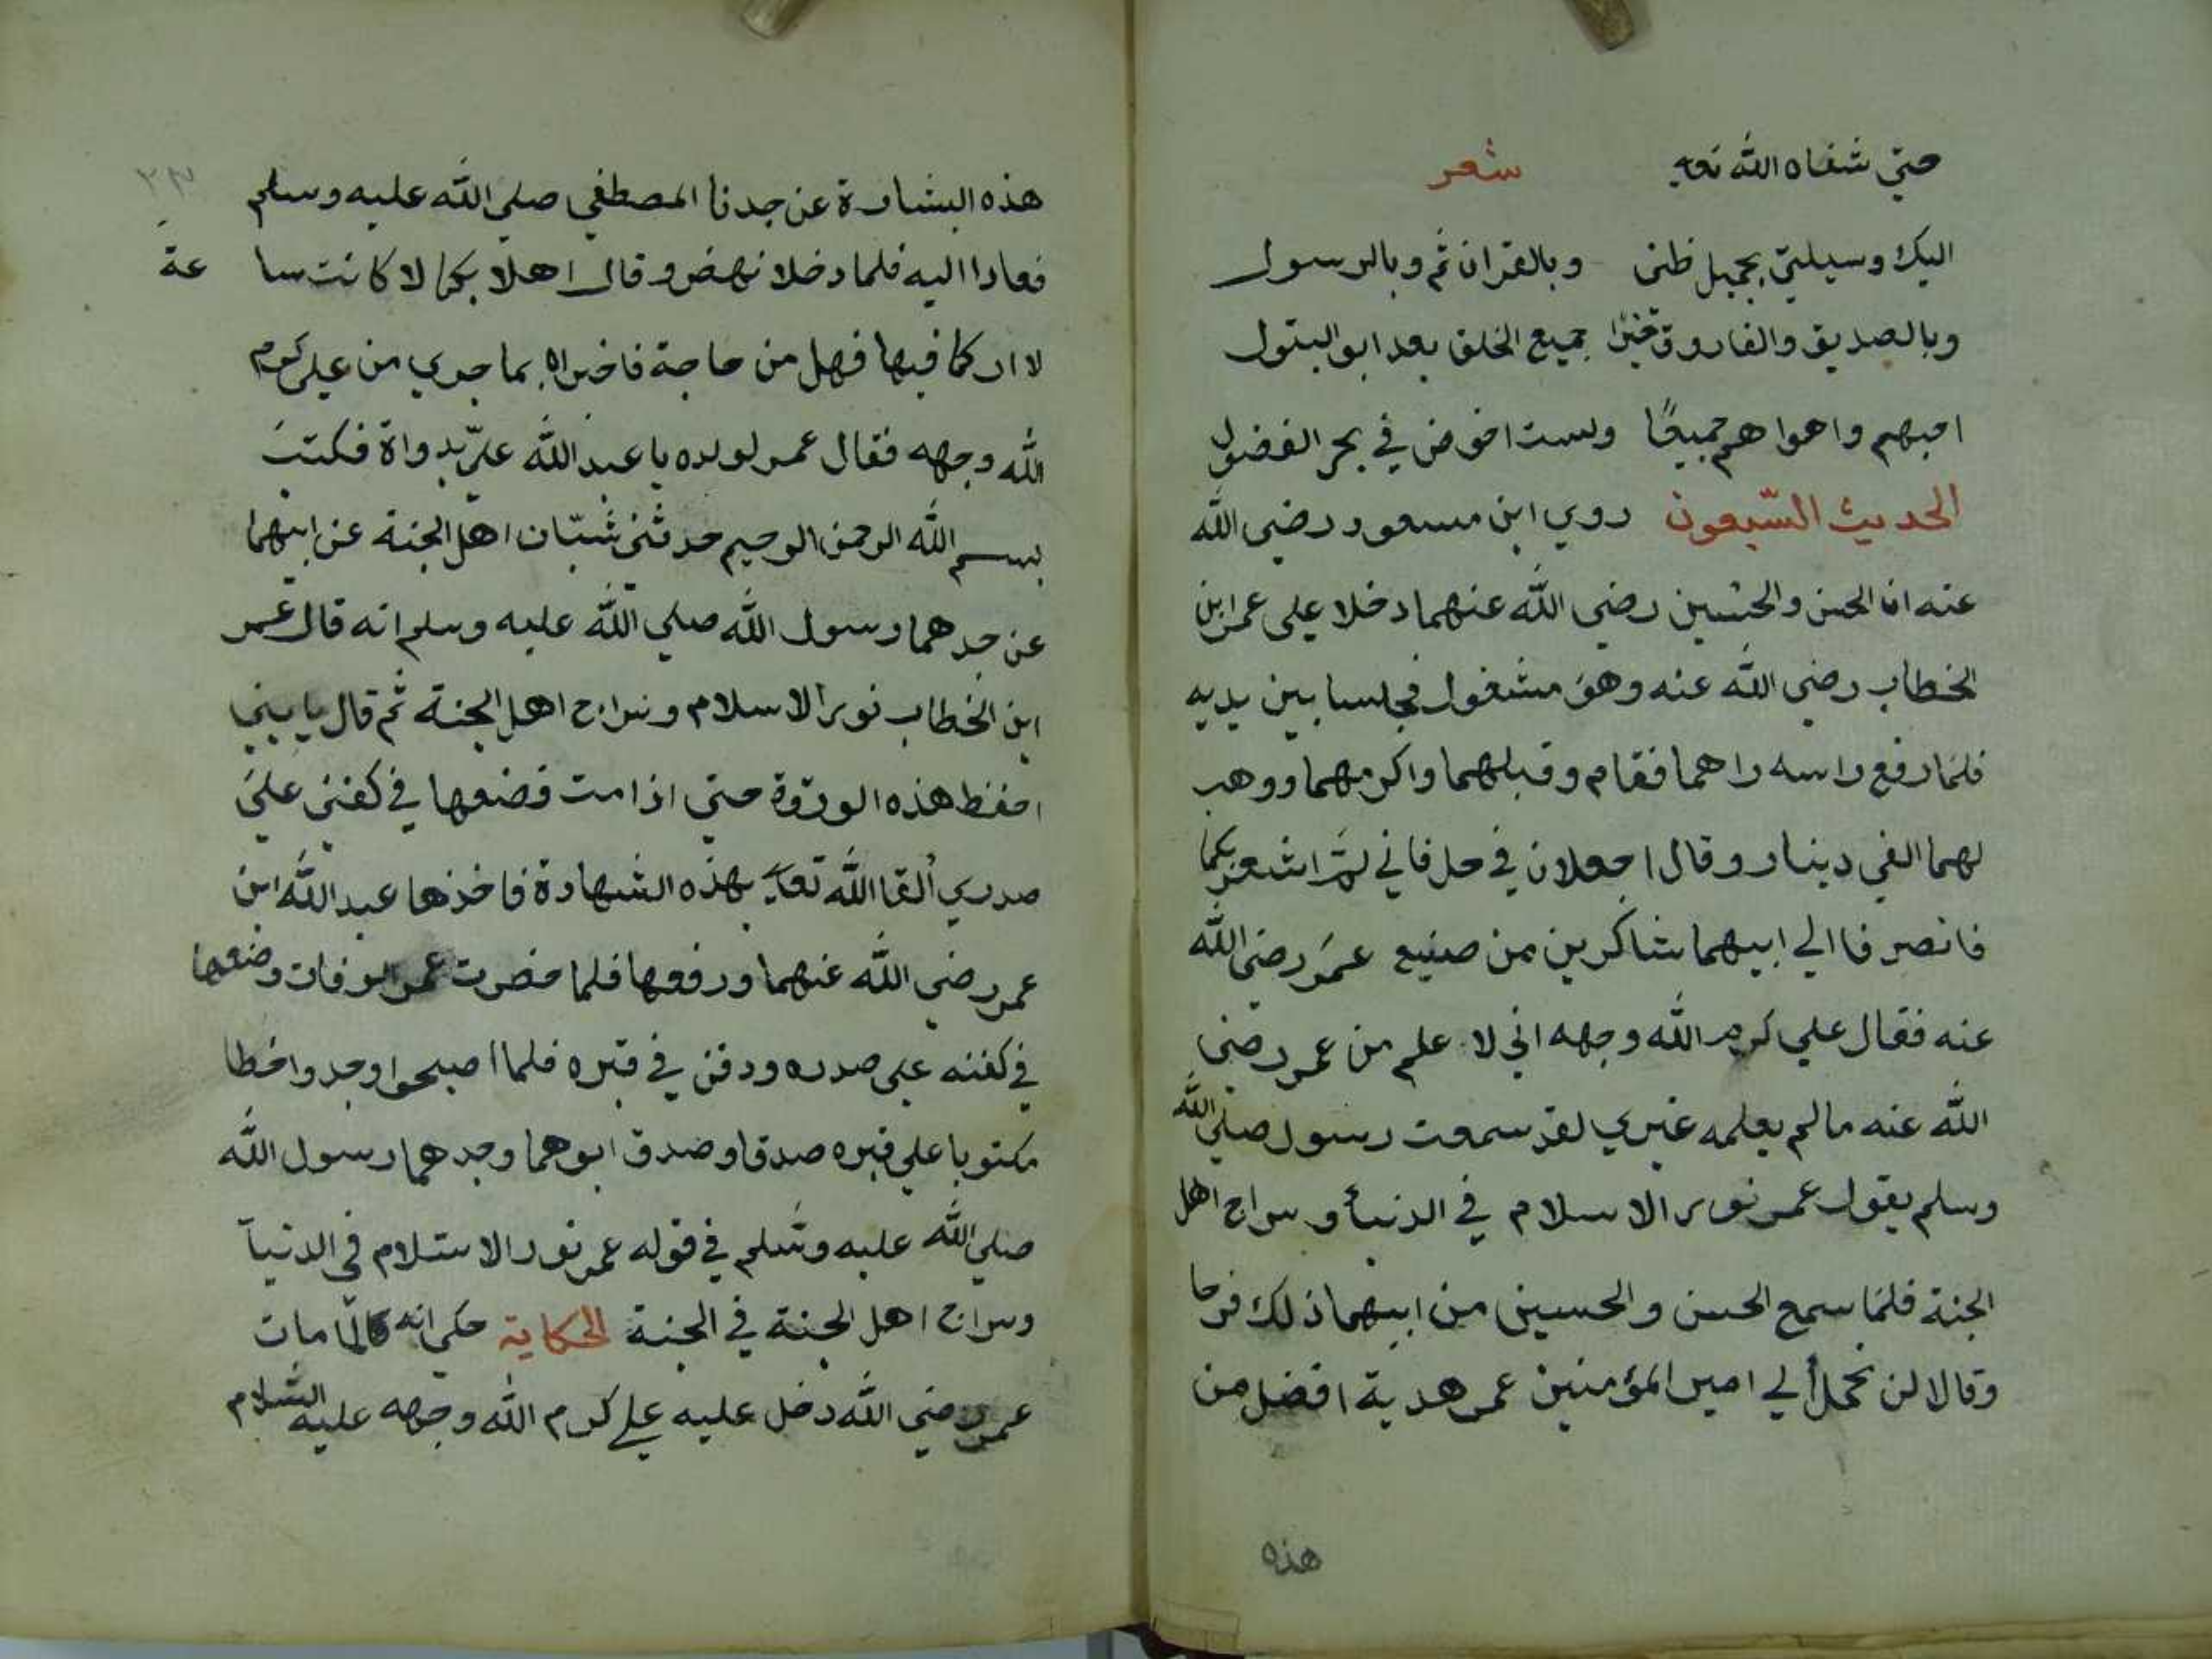 حتي شفاه الله تعه شعر
اليك وسيلتي بجميل ظني وبالقران ثم وبالرسول
وبالصديق والفاروق جميع الخلق بعد ابو البتول
احبهم واهواهم جميعًا ولست اخوض في بحر الفضول
الحديث السّبعون روي ابن مسعود رضي الله
عنه ان الحسن والحسين رضي الله عنهما دخلا علي عمر ابن
الخطاب رضي الله عنه وهو مشغول فجلسا بين يديه
فلما رفع راسه راهما فقام وقبلهما واكرمهما ووهب
لهما الفي دينار وقال اجعلان في حل فاني اشعر بكما
فانصرفا الي ابيهما شاكرين من صنيع عمر رضي الله
عنه فقال علي كرم الله وجهه اني لا علم من عمر رضي
الله عنه ما لم يعلمه غيري لقد سمعت رسول صلي الله
وسلم يقول عمر نور الاسلام في الدنيا وسراج اهل
الجنة فلما سمع الحسن والحسين من ابيهما ذلك فرحا
وقالا لن نحمل الي امير المؤمنين عمر هدية افضل من
هذه
٢٣
هذه البشارة عن جدنا المصطفي صلي الله عليه وسلم
فعادا اليه فلما دخلا نهض وقال اهلا بكما لا كانت سا عة
لا اركما فيها فهل من حاجة فاخبراه بما جري من علي كرم
الله وجهه فقال عمر لولده يا عبد الله عليّ بدواة فكتب
بسم الله الرحمن الرحيم حدثني شبّان اهل الجنة عن ابيهما
عن جدهما رسول الله صلي الله عليه وسلم انه قال عمر
ابن الخطاب نور الاسلام وسراج اهل الجنة ثم قال يا بني
احفظ هذه الورقة حتي اذا مت فضعها في كفني علي
صدري ألقا الله تعه بهذه الشهادة فاخذها عبد الله ابن
عمر رضي الله عنهما ورفعها فلما حضرت عمر الوفات وضعها
في كفنه علي صدره ودفن في قبره فلما اصبحوا وجدوا خطا
مكتوبا علي قبره صدقا وصدق ابوهما وجدهما رسول الله
صلي الله عليه وسلم في قوله عمر نور الاسلام في الدنيا
وسراج اهل الجنة في الجنة الحكاية حكي انه لمّا مات
عمر رضي الله دخل عليه علي كرم الله وجهه عليه السّلام